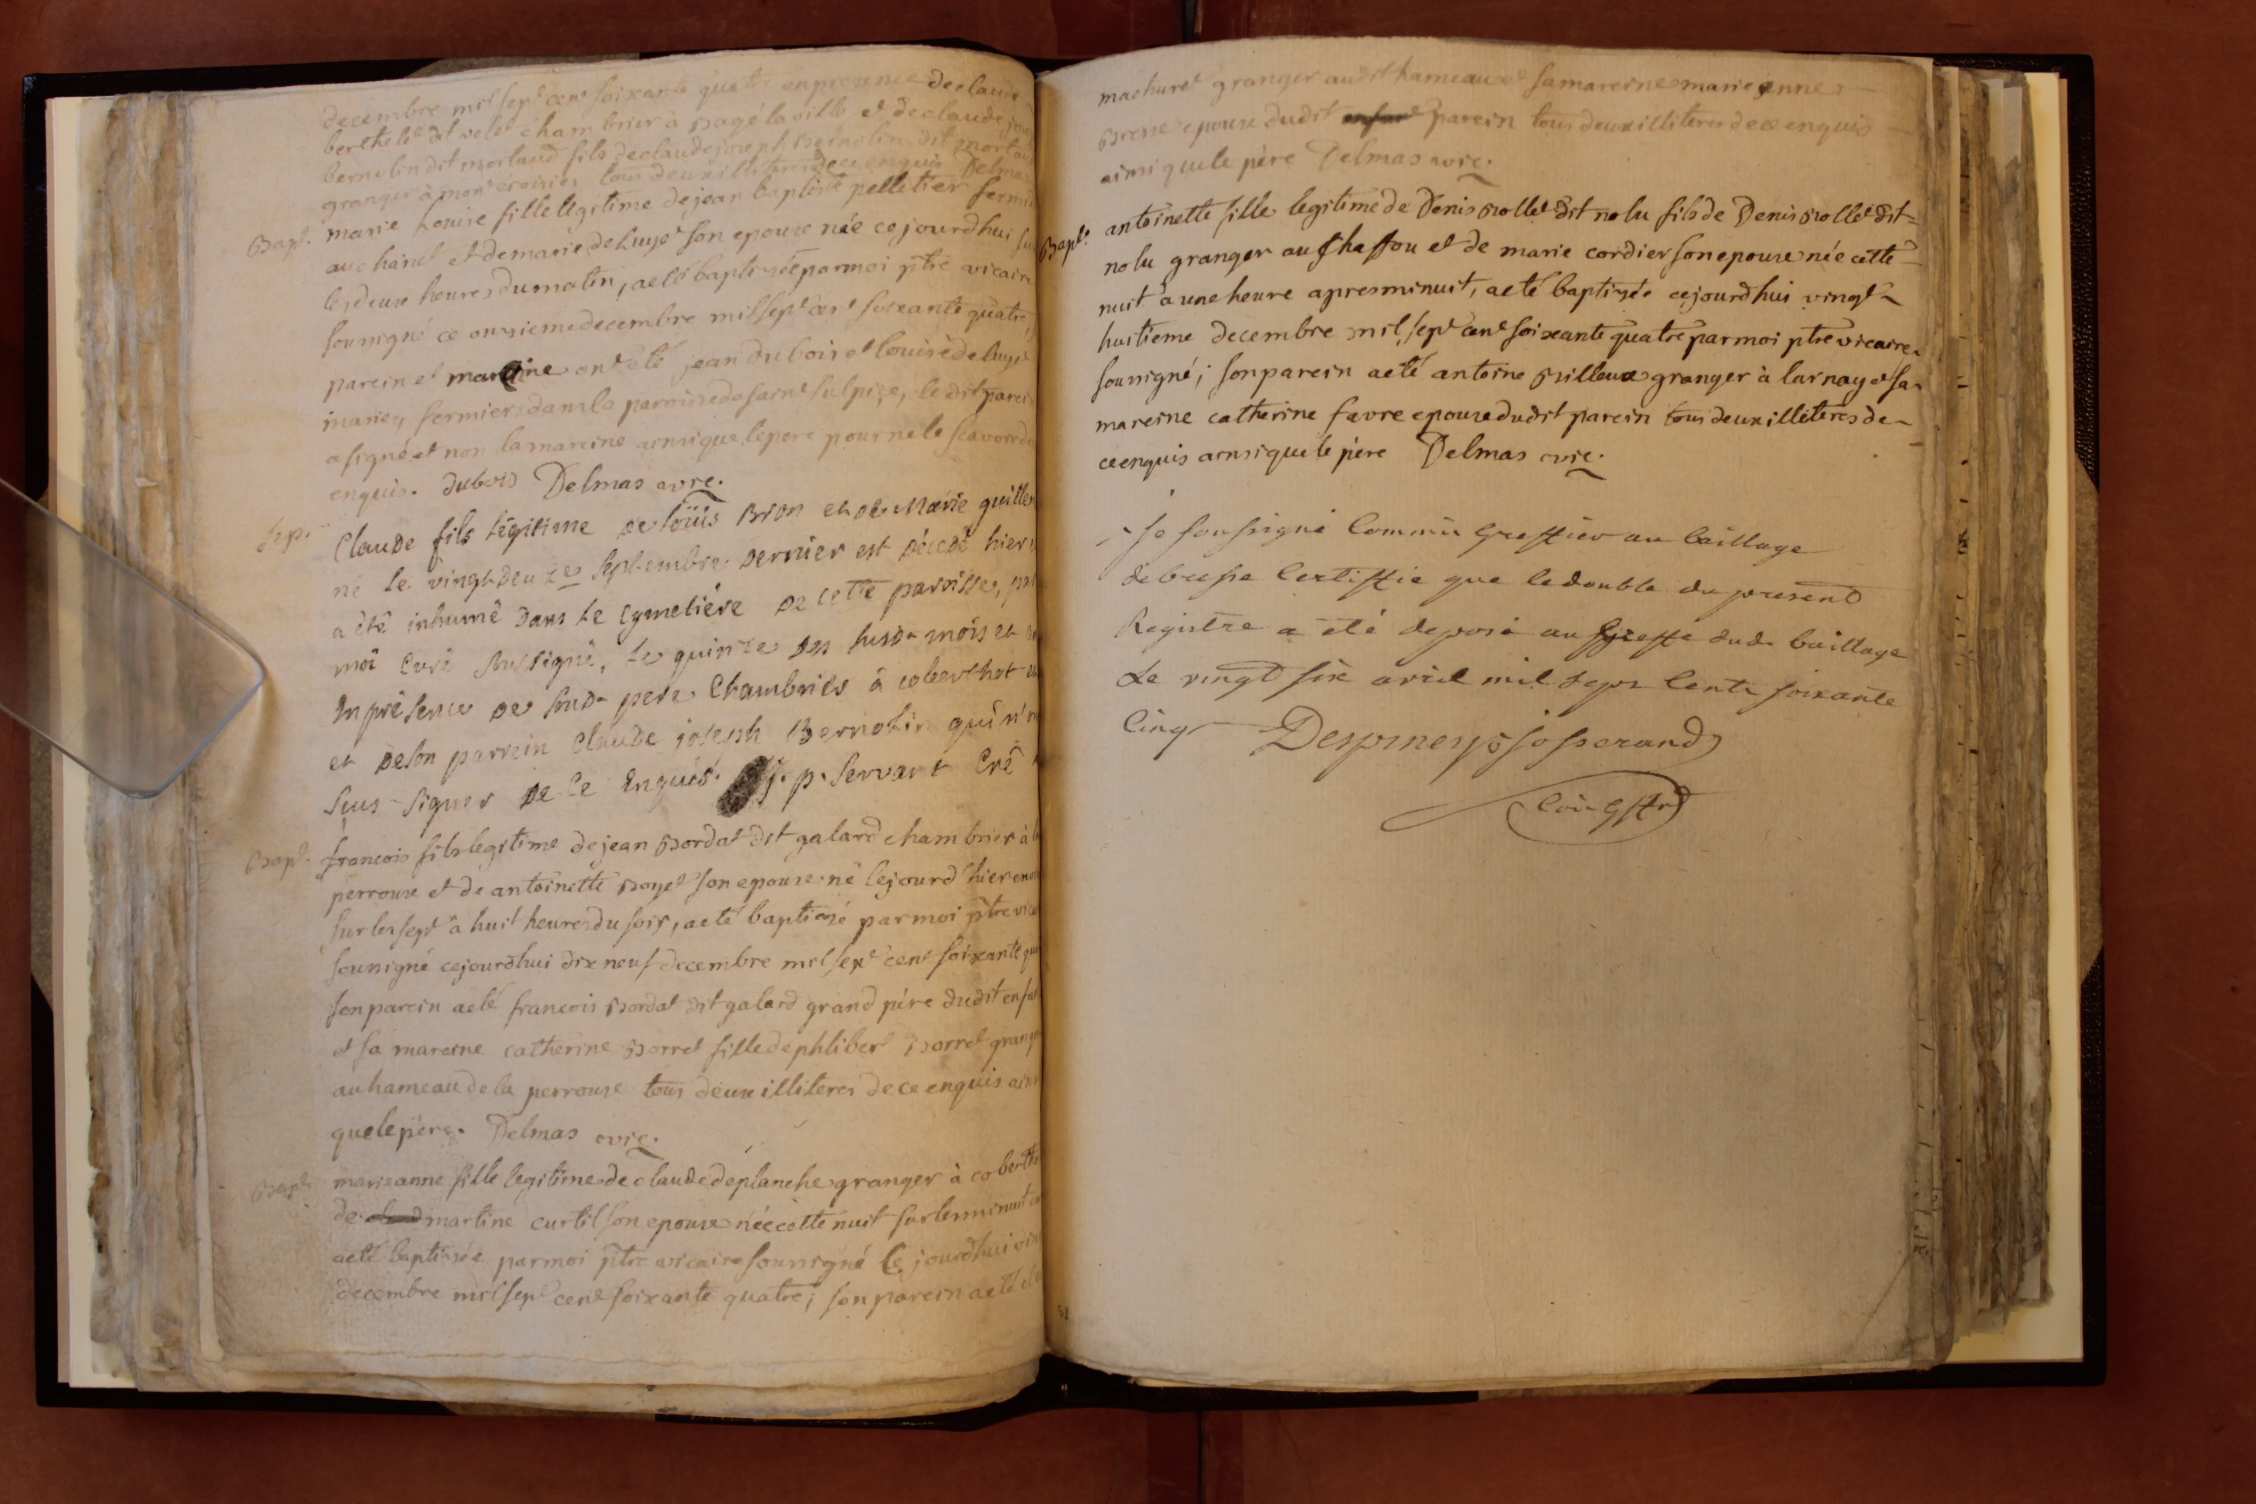 decembre mil sept cent soixante quatre en presence de claude
berthelet dit velet chambrier à Bagé la ville et de claude
bernolin dit morlaud fils de claude joseph Bernolin dit
granger à tous deux illiteres de ce enquis Delmas
Bapt. marie Louise fille legitime de jean baptiste pelletier fermier
au chanet et de marie deluyet son epouse née cejourdhui
les deux heures du matin, a eté baptizée par moi ptre vicaire
soussigné ce onzieme decembre mil sept cent soixante quatre,
parein et mareine ont eté jean dubois et louise deluyet
mariez fermiers dans la paroisse de saint sulpize, le dit parein
a signé et non la mareine ainsi que le pere pour ne le scavoir de
enquis. dubois Delmas vic.
Sep. Claude fils légitime de loüis Bron et de Marie
né le vingt deuxe Septembre Dernier est Décedé hier
a été inhumé dans le cymetiére De cette parroisse, par
moi Curé soussigné, le quinze des susd. mois et
En présence de sond. pere Chambrier à coberthet
et de son parrein Claude joseph Bernolin qui n'
sous-signer De ce Enquis. j. p. Servant Cré
Bapt. francois fils legitime de jean Bordat dit galard chambrier à la
perrouse et de antoinette Boyet son epouse né le jourd'hier
sur les sept à huit heures du soir, a eté baptizé par moi ptre vic
soussigné cejourdhui dix neuf decembre mil sept cent soixante
son parein a eté francois Bordat dit galard grand pére dudit enfant
et sa mareine catherine Borret fille de phlibert Borret granger
au hameau de la perrouse tous deux illiteres de ce enquis
que le pére. Delmas vic.
Bapt. marie anne fille legitime de claude deplanche granger à coberthet
de martine curtil son epouse née cette nuit sur les minuit
a eté baptizée par moi ptre vicaire soussigné Ce jourdhui
decembre mil sept cent soixante quatre; son parein a eté
machuret granger audit hameau et sa mareine marie anne
epouse dudit parein tous deux illiteres de ce enquis
ainsi que le père Delmas vic.
Bapt. antoinette fille legitime de Denis Rollet dit nolu fils de Denis Rollet dit
nolu granger au Chaffou et de marie cordier son epouse née cette
nuit à une heure apres minuit, a eté baptizée cejourdhui vingt
huitieme decembre mil sept cent soixante quatre par moi ptre vicaire
soussigné; son parein a eté antoine granger à larnay et sa
mareine catherine favre epouse dudit parein tous deux illiteres de
ce enquis ainsi que le père Delmas vic.
Je soussigné Commis Greffier au bailliage
de bresse Certiffie que le double du present
Registre a été deposé au Greffe dud. bailliage
Le vingt six avril mil sept Cents soixante
Cinq